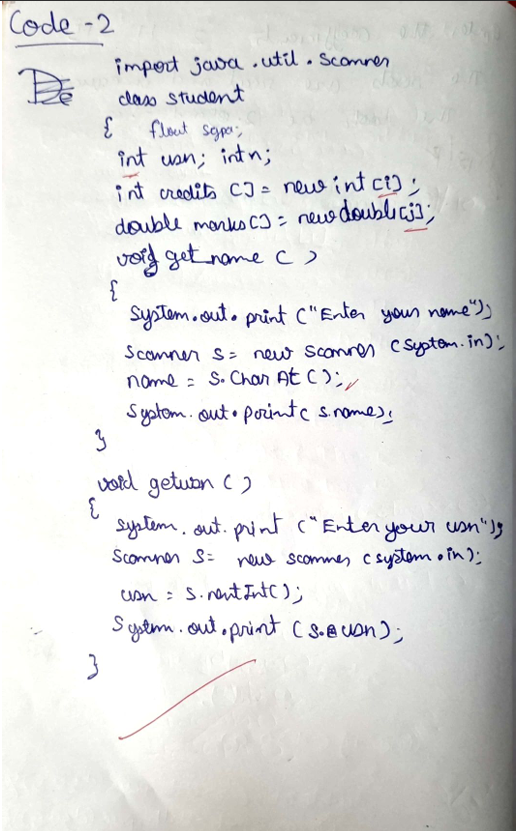 Code - 2
import java.util.Scanner
class student
{ float sgpa;
int usn; int n;
int credits [] = new int [i];
double marks [] = new double [j];
void get name ( )
{
System.out.print ("Enter your name");
Scanner s = new Scanner (System.in);
name = s.CharAt ();
System.out.print ( s.name);
}
void getusn ( )
{
System.out.print ("Enter your usn");
Scanner S = new scanner (system.in);
usn = s.nextInt();
System.out.print (s.usn);
}